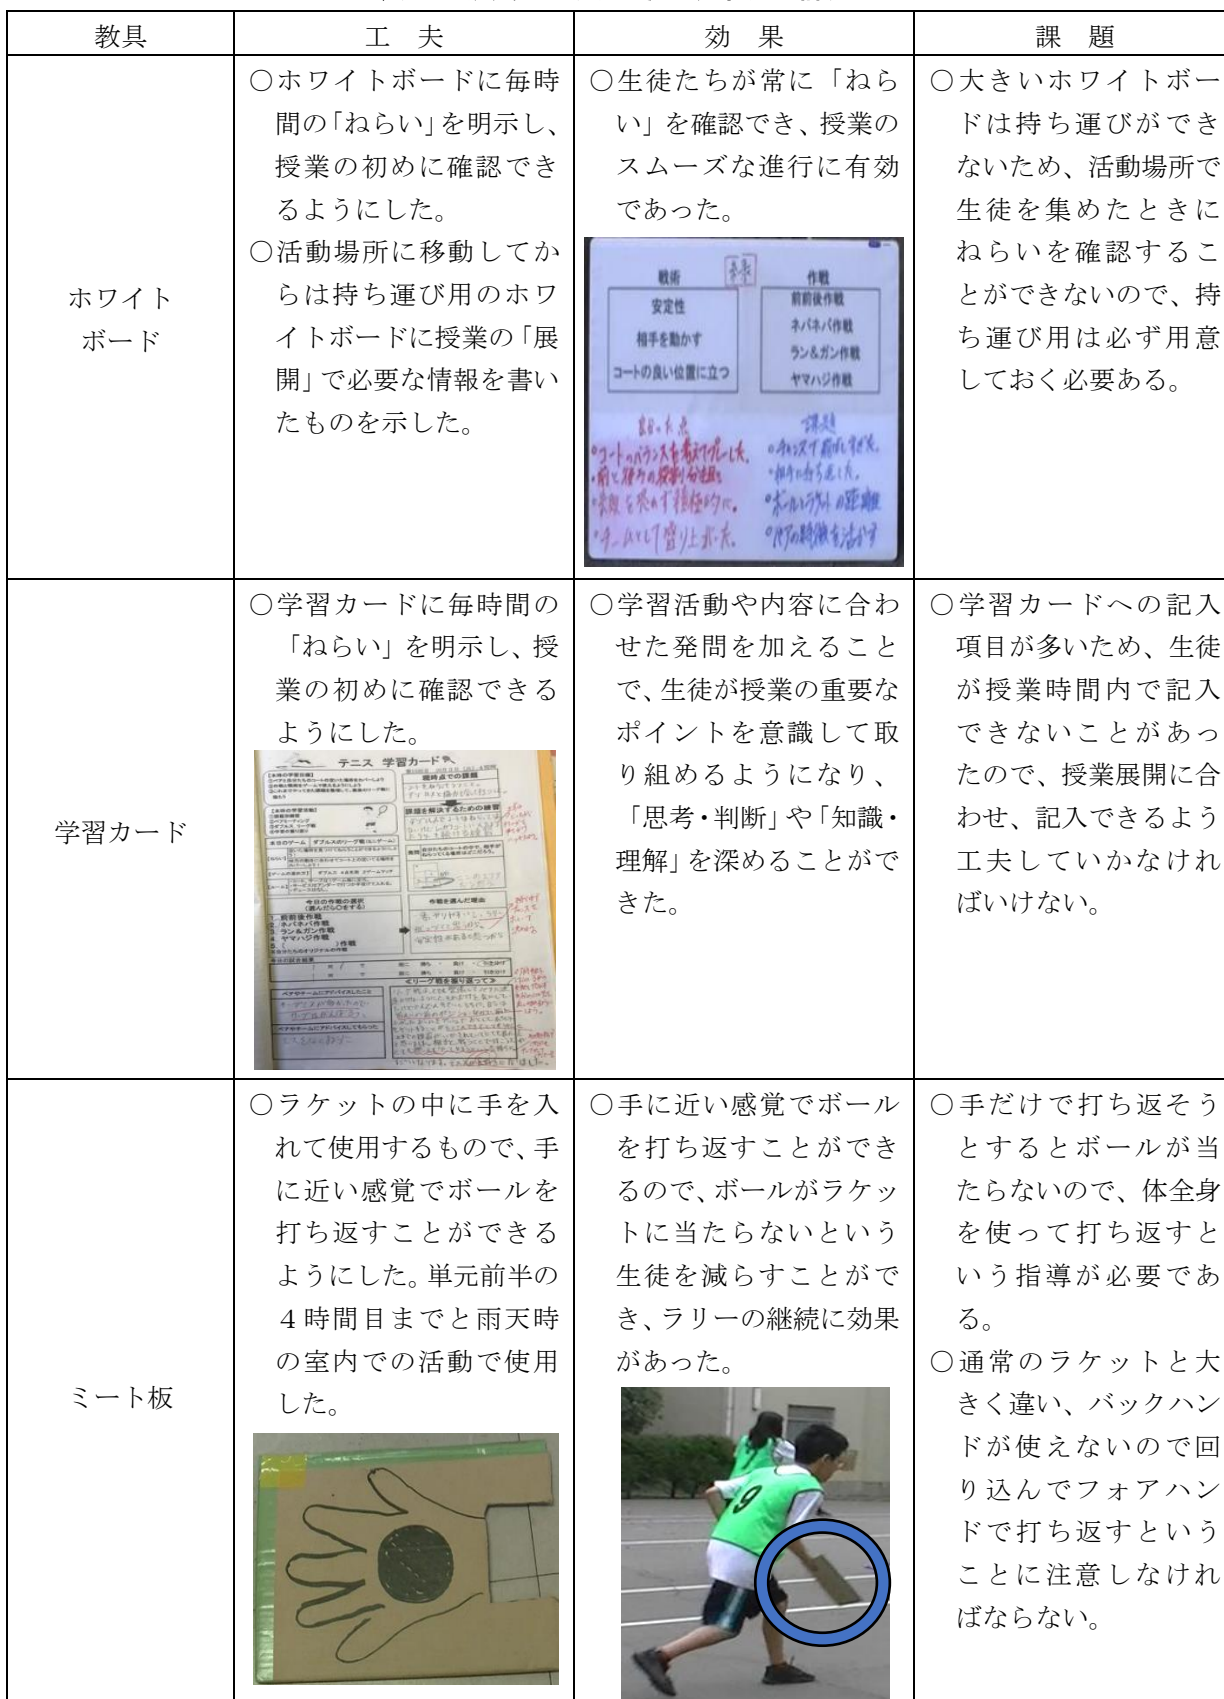 教具
工　夫
効　果
課　題
ホワイト
ボード
○ホワイトボードに毎時
間の「ねらい」を明示し、
授業の初めに確認でき
るようにした。
○活動場所に移動してか
らは持ち運び用のホワ
イトボードに授業の「展
開」で必要な情報を書い
たものを示した。
○生徒たちが常に「ねら
い」を確認でき、授業の
スムーズな進行に有効
であった。
戦術
安定性
相手を動かす
コートの良い位置に立つ
作戦
前前後作戦
ネバネバ作戦
ラン&ガン作戦
ヤマハジ作戦
課題
○大きいホワイトボー
ドは持ち運びができ
ないため、活動場所で
生徒を集めたときに
ねらいを確認するこ
とができないので、持
ち運び用は必ず用意
しておく必要ある。
学習カード
○学習カードに毎時間の
「ねらい」を明示し、授
業の初めに確認できる
ようにした。
テニス 学習カード
現時点での課題
課題を解決するための練習
今日の作戦の選択
(選んだら○をする)
1. 前前後作戦
2. ネバネバ作戦
3. ラン&ガン作戦
4. ヤマハジ作戦
作戦を選んだ理由
≪リーグ戦を振り返って≫
○学習活動や内容に合わ
せた発問を加えること
で、生徒が授業の重要な
ポイントを意識して取
り組めるようになり、
「思考・判断」や「知識・
理解」を深めることがで
きた。
○学習カードへの記入
項目が多いため、生徒
が授業時間内で記入
できないことがあっ
たので、授業展開に合
わせ、記入できるよう
工夫していかなけれ
ばいけない。
ミート板
○ラケットの中に手を入
れて使用するもので、手
に近い感覚でボールを
打ち返すことができる
ようにした。単元前半の
４時間目までと雨天時
の室内での活動で使用
した。
○手に近い感覚でボール
を打ち返すことができ
るので、ボールがラケッ
トに当たらないという
生徒を減らすことがで
き、ラリーの継続に効果
があった。
9
○手だけで打ち返そう
とするとボールが当
たらないので、体全身
を使って打ち返すと
いう指導が必要であ
る。
○通常のラケットと大
きく違い、バックハン
ドが使えないので回
り込んでフォアハン
ドで打ち返すという
ことに注意しなけれ
ばならない。